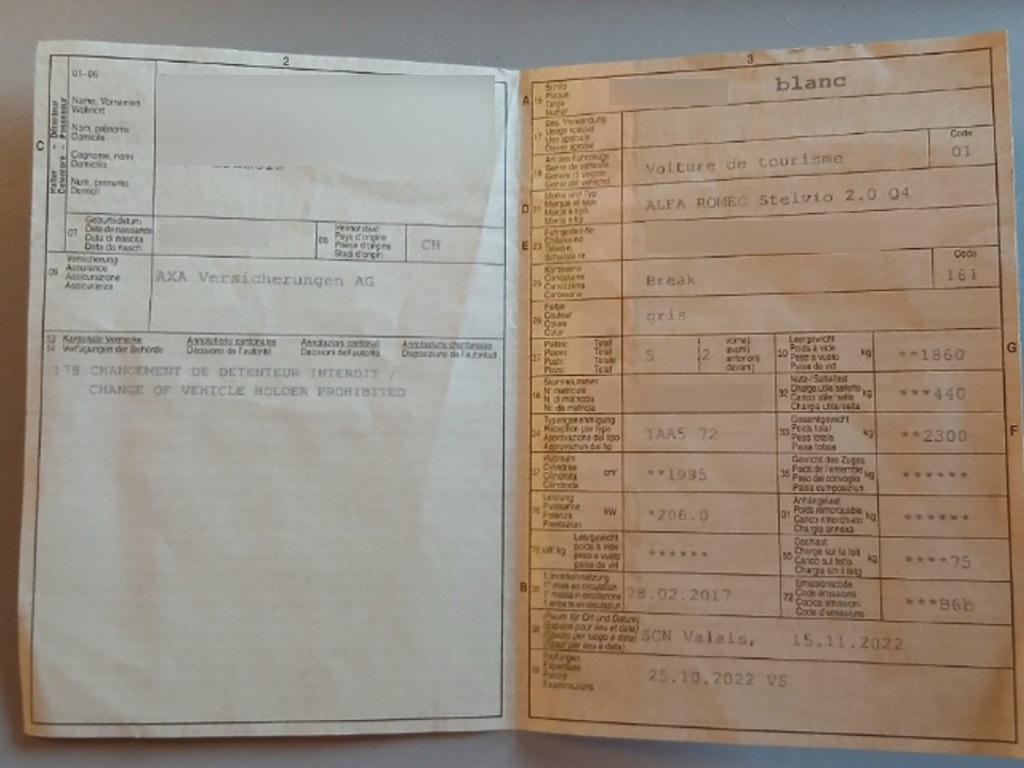 2
01-06
C
Halter - Détenteur
Detentore - Possessur
Name, Vornamen
Wohnort
Nom, prénoms
Domicile
Cognome, nomi
Domicilio
Num, prenums
Domicil
07
Geburtsdatum
Date de naissance
Data di nascita
Data da nasch.
08
Heimatstaat
Pays d'origine
Paese d'origine
Stadi d'origin
CH
09
Versicherung
Assurance
Assicurazione
Assicuranza
AXA Versicherungen AG
13 Kantonale Vermerke Annotations cantonales Annotazioni cantonali Annotaziuns chantunalas
14 Verfügungen der Behörde Décisions de l'autorité Decisioni dell'autorità Disposiziuns da l'autoritad
178 CHANGEMENT DE DETENTEUR INTERDIT /
CHANGE OF VEHICLE HOLDER PROHIBITED
3
A 15
Schild
Plaque
Targa
Numer
blanc
17
Bes. Verwendung
Usage spécial
Uso speciale
Diever spezial
19
Art des Fahrzeugs
Genre de véhicule
Genere di veicolo
Gener dal vehichel
Voiture de tourisme
Code
01
D 21
Marke und Typ
Marque et type
Marca e tipo
Marca e tip
ALFA ROMEO Stelvio 2.0 Q4
E 23
Fahrgestell-Nr.
Châssis no
Telaio n.
Schassis nr.
25
Karosserie
Carrosserie
Carrozzeria
Carossaria
Break
Code
161
26
Farbe
Couleur
Colore
Colur
gris
27
Plätze: Total
Places: Total
Posti: Totale
Plazs: Total
5
(2
vorne)
avant)
anteriori)
davant)
30
Leergewicht
Poids à vide
Peso a vuoto
Paisa da vid
kg
**1860
G
18
Stammnummer
N° matricule
N. di matricola
Nr. da matricla
32
Nutz-/Sattellast
Charge utile/sellette
Carico utile/sella
Chargia utila/sella
kg
***440
24
Typengenehmigung
Réception par type
Approvazione del tipo
Approvaziun dal tip
1AA5 72
33
Gesamtgewicht
Poids total
Peso totale
Paisa totala
kg
**2300
F
37
Hubraum
Cylindrée
Cilindrata
Cilindrada
cm³
**1995
35
Gewicht des Zuges
Poids de l'ensemble
Peso del convoglio
Paisa cumposiziun
kg
******
76
Leistung
Puissance
Potenza
Prestaziun
kW
*206.0
31
Anhängelast
Poids remorquable
Carico rimorchiato
Chargia annexa
kg
******
78 kW/kg
Leergewicht
poids à vide
peso a vuoto
paisa da vid
******
55
Dachlast
Charge sur le toit
Carico sul tetto
Chargia sin il tetg
kg
****75
B 36
1. Inverkehrsetzung
1re mise en circulation
1a messa in circolazione
1. entrada en circulaziun
28.02.2017
72
Emissionscode
Code émissions
Codice emissioni
Code d'emissiuns
***B6b
38
(Raum für Ort und Datum)
(Espace pour lieu et date)
(Spazio per luogo e data)
(Spazi per lieu e data)
SCN Valais, 15.11.2022
39
Prüfungen
Expertises
Perizie
Examinaziuns
25.10.2022 VS